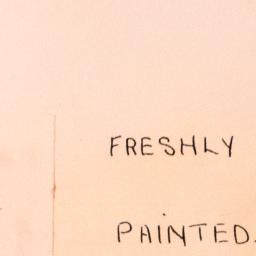 FRESHLY
PAINTED.